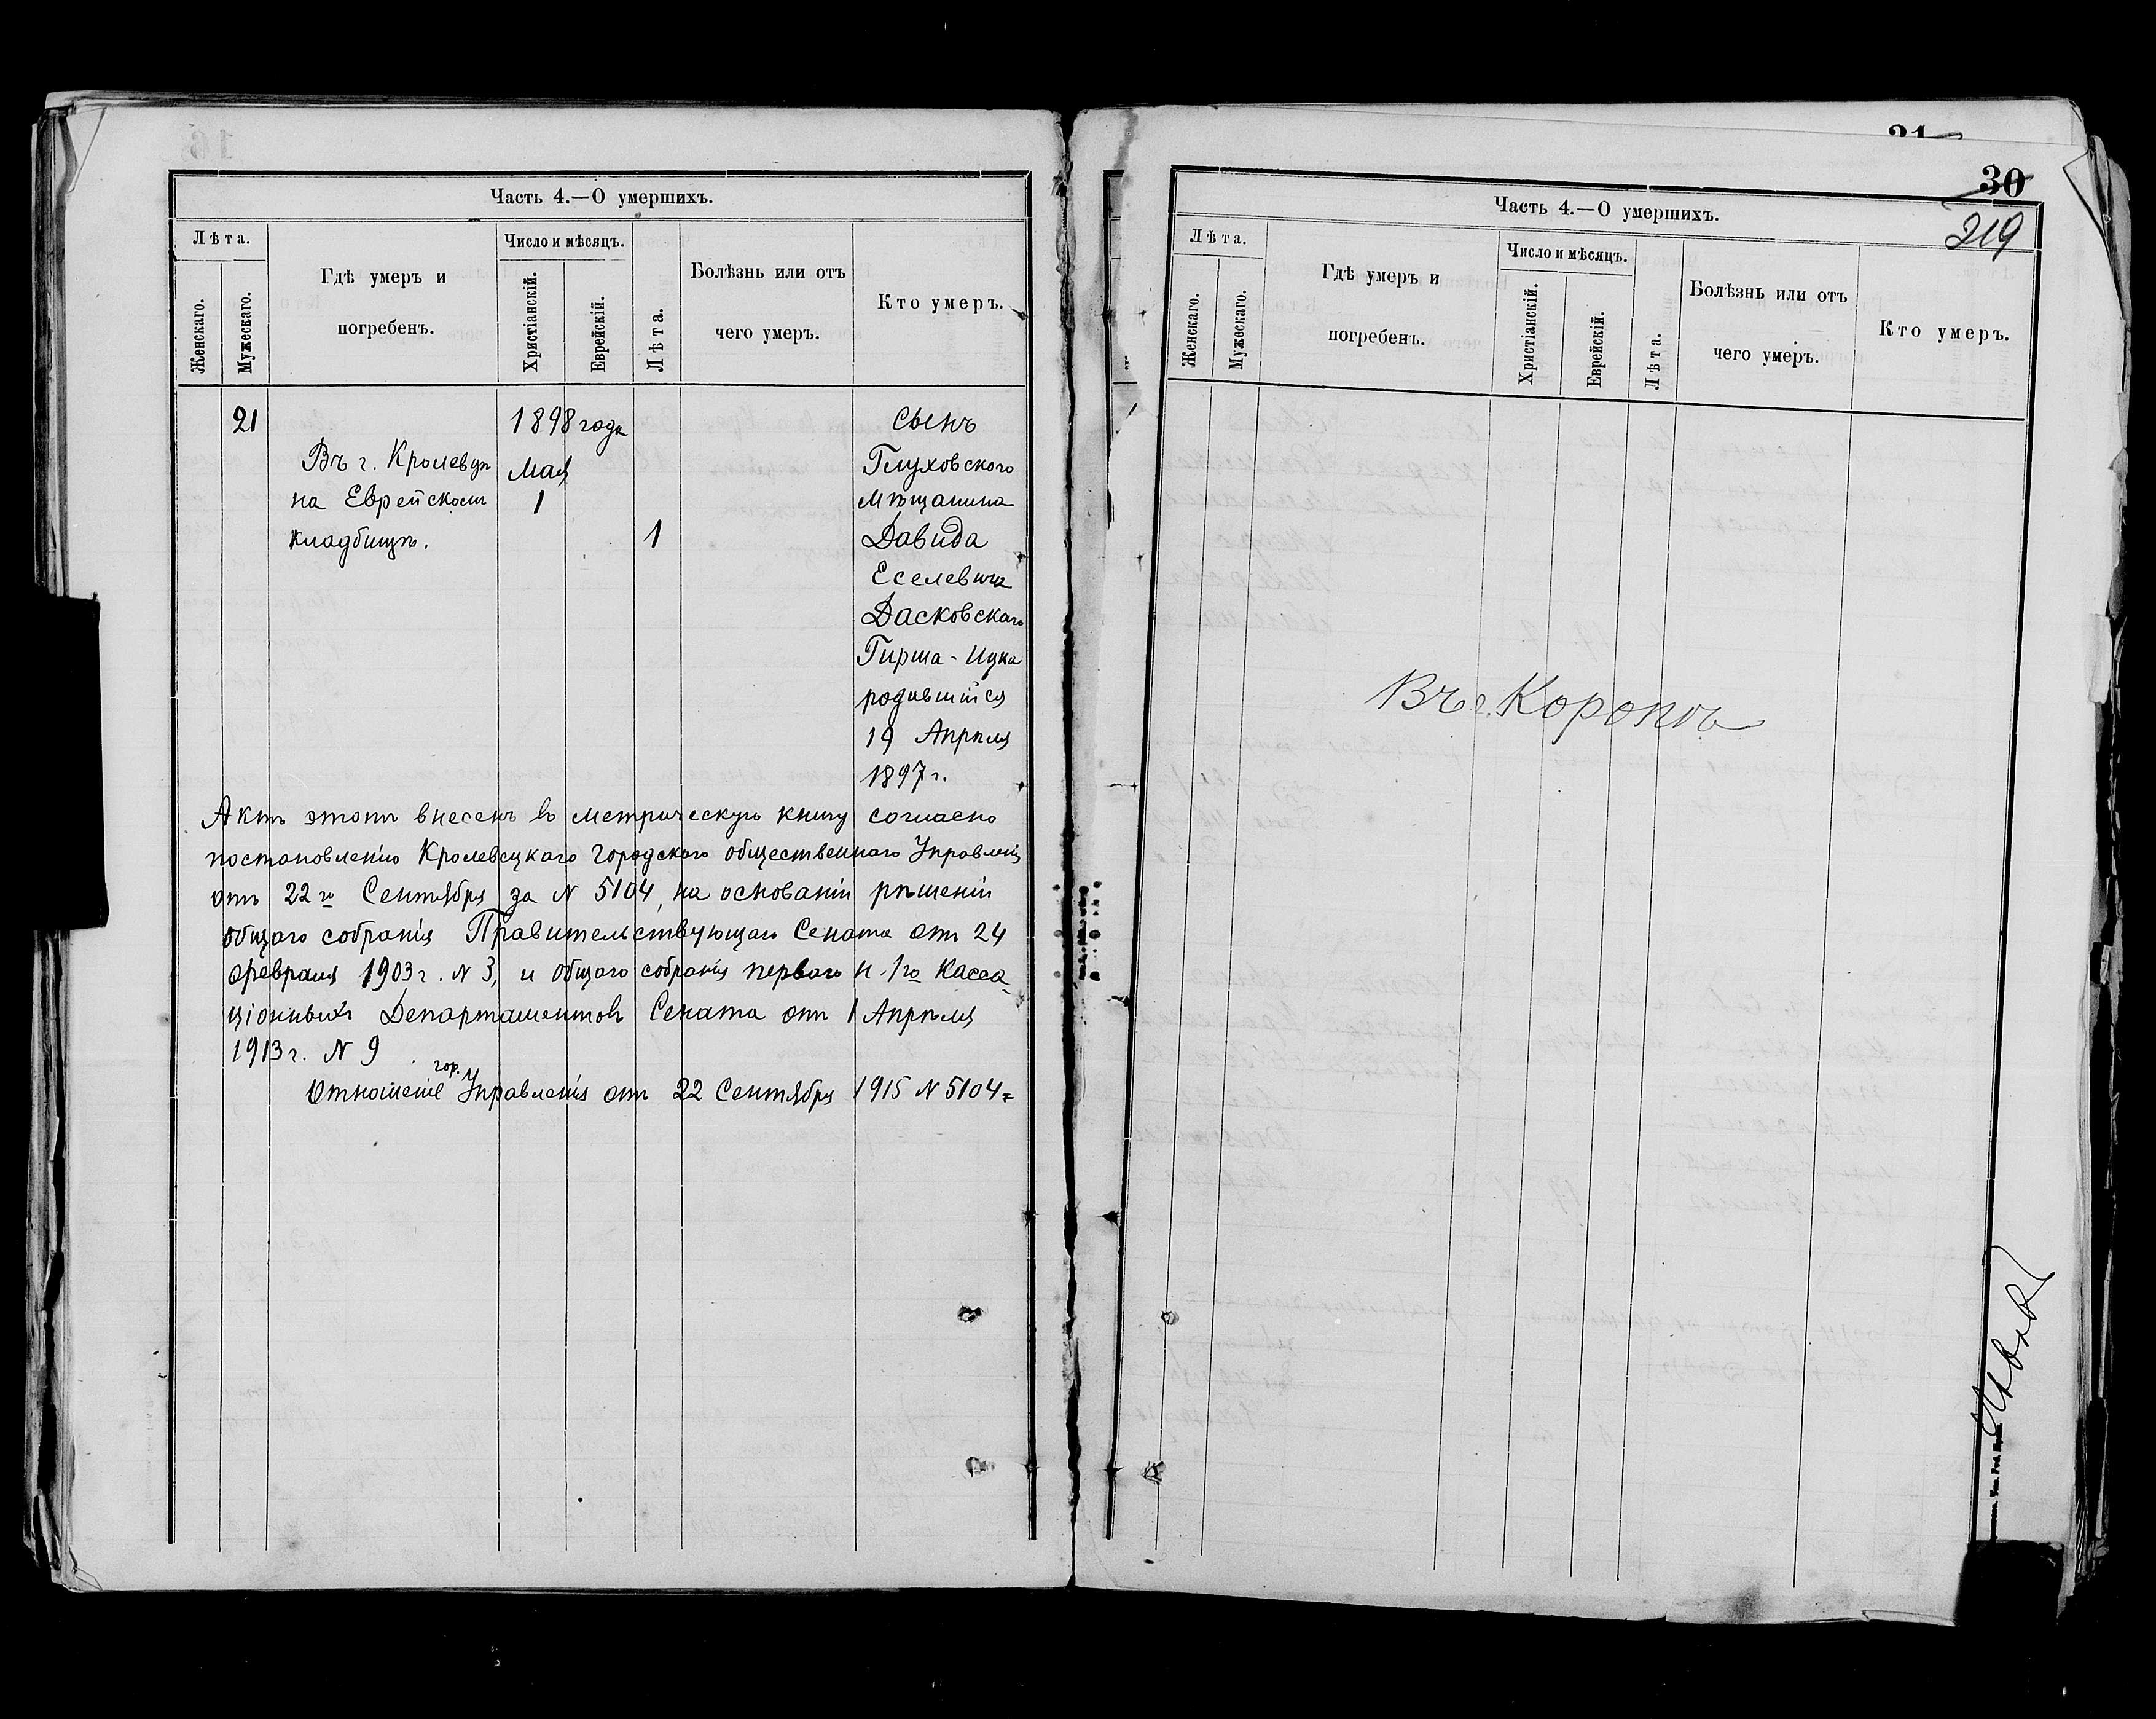 Часть 4.—О умершихъ.
Лѣта.
Женскаго.
Мужескаго.
Гдѣ умеръ и
погребенъ.
Число и мѣсяцъ.
Христіанскій.
Еврейскій.
Лѣта.
Болѣзнь или отъ
чего умеръ.
Кто умеръ.
21
1898 года
Сынъ
Въ г. Кролевцѣ
Мая
Глуховского
на Еврейскомъ
1
Мѣщанина
кладбищѣ.
1
Давида
Еселевича
Дасковскаго
Гирша-Ицка
родившійся
19 Апрѣля
1897 г.
Актъ этотъ внесенъ во метрическую книгу согласно
постановленію Кролевецкаго Городского общественнаго Управленія
отъ 22го Сентября за N 5104, на основаніи рѣшеній
общаго собранія Правительствующаго Сената отъ 24
февраля 1903 г. N 3, и общаго собранія перваго и 1го Касса-
ціонныхъ Департаментовъ Сената отъ 1 Апрѣля
1913 г. N 9
гор.
Отношеніе Управленія отъ 22 Сентября 1915 N 5104=
30
219
Часть 4.—О умершихъ.
Лѣта.
Женскаго.
Мужескаго.
Гдѣ умеръ и
погребенъ.
Число и мѣсяцъ.
Христіанскій.
Еврейскій.
Лѣта.
Болѣзнь или отъ
чего умеръ.
Кто умеръ.
Въ г. Коропѣ